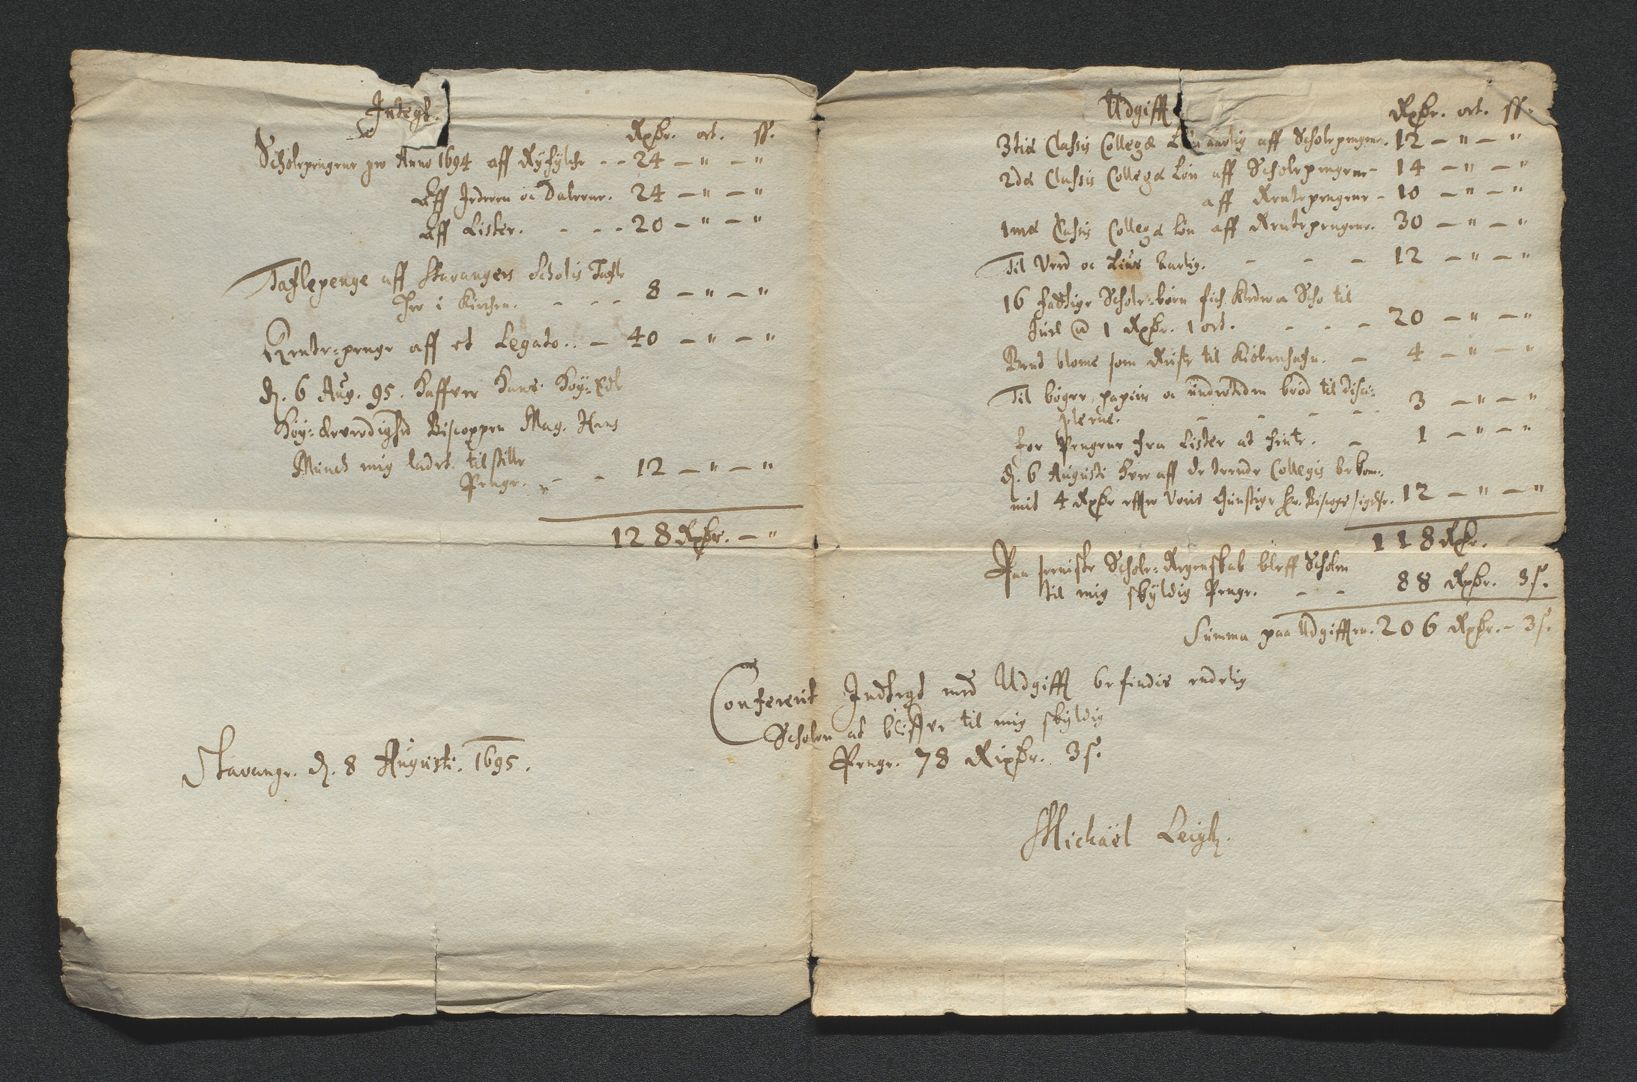 Indtegt.
Rixdr. ort. ss.
Scholepengene pro Anno 1694 aff Ryfylche - - 24 - " - "
Aff Jederen oc Dalerne. 24 - " - "
Aff Lister. - - - 20 - " - "
Taflepenge aff Stavangers Scholis Tafle
Her i Kirchen. - - - 8 - " - "
Rente-penge aff et Legato. - 40 - " - "
d. 6 Aug. 95. haffver Hans Høy-Edl
Høy-Ærværdighed Biscoppen Mag. Hans
Munch mig ladet tilstille
Penge. - - 12 - " - "
128 Rixdr. - "
Stavanger. d. 8 Augusti. 1695.
Udgifft
Rixdr. ort. ss.
3tiæ Classis Collegæ Løn aarlig aff Scholepengene. 12 - " - "
2dæ Classis Collegæ Løn aff Scholepengene - 14 - " - "
aff Rentepengene - 10 - " - "
1mæ Classis Collegæ Løn aff Rentepengene. 30 - " - "
Til Veed oc Lius Aarlig. - - - 12 - " - "
16 fattige Schole-børn fich Klæder oc Scho til
Juel @ 1 Rixdr. 1 ort. - - - 20 - " - "
Berent blome som Reiste til Kiøbenhafn. - 4 - " - "
Til bøger, papiir oc undertiden brød til Disci-
plerne. - - - - 3 - " - "
For Pengene fra Lister at hente. - 1 - " - "
d. 6 Augusti hver aff de trende Collegis bekom-
mit 4 Rixdr effter Voris Gunstige Hr. Bisops sigelse. 12 - " - "
118 Rdr.
Paa seeniste Schole-Regenskab bleff Scholen
til mig skyldig Penge. - - 88 Rixdr. 3 s.
Summa paa Udgifften. 206 Rixdr. - 3 s.
Conferent Indtegt med Udgifft befindis endelig
Scholen at bliffve til mig skyldig
Penge. 78 Rixdr. 3 s.
Michaël Leigh.